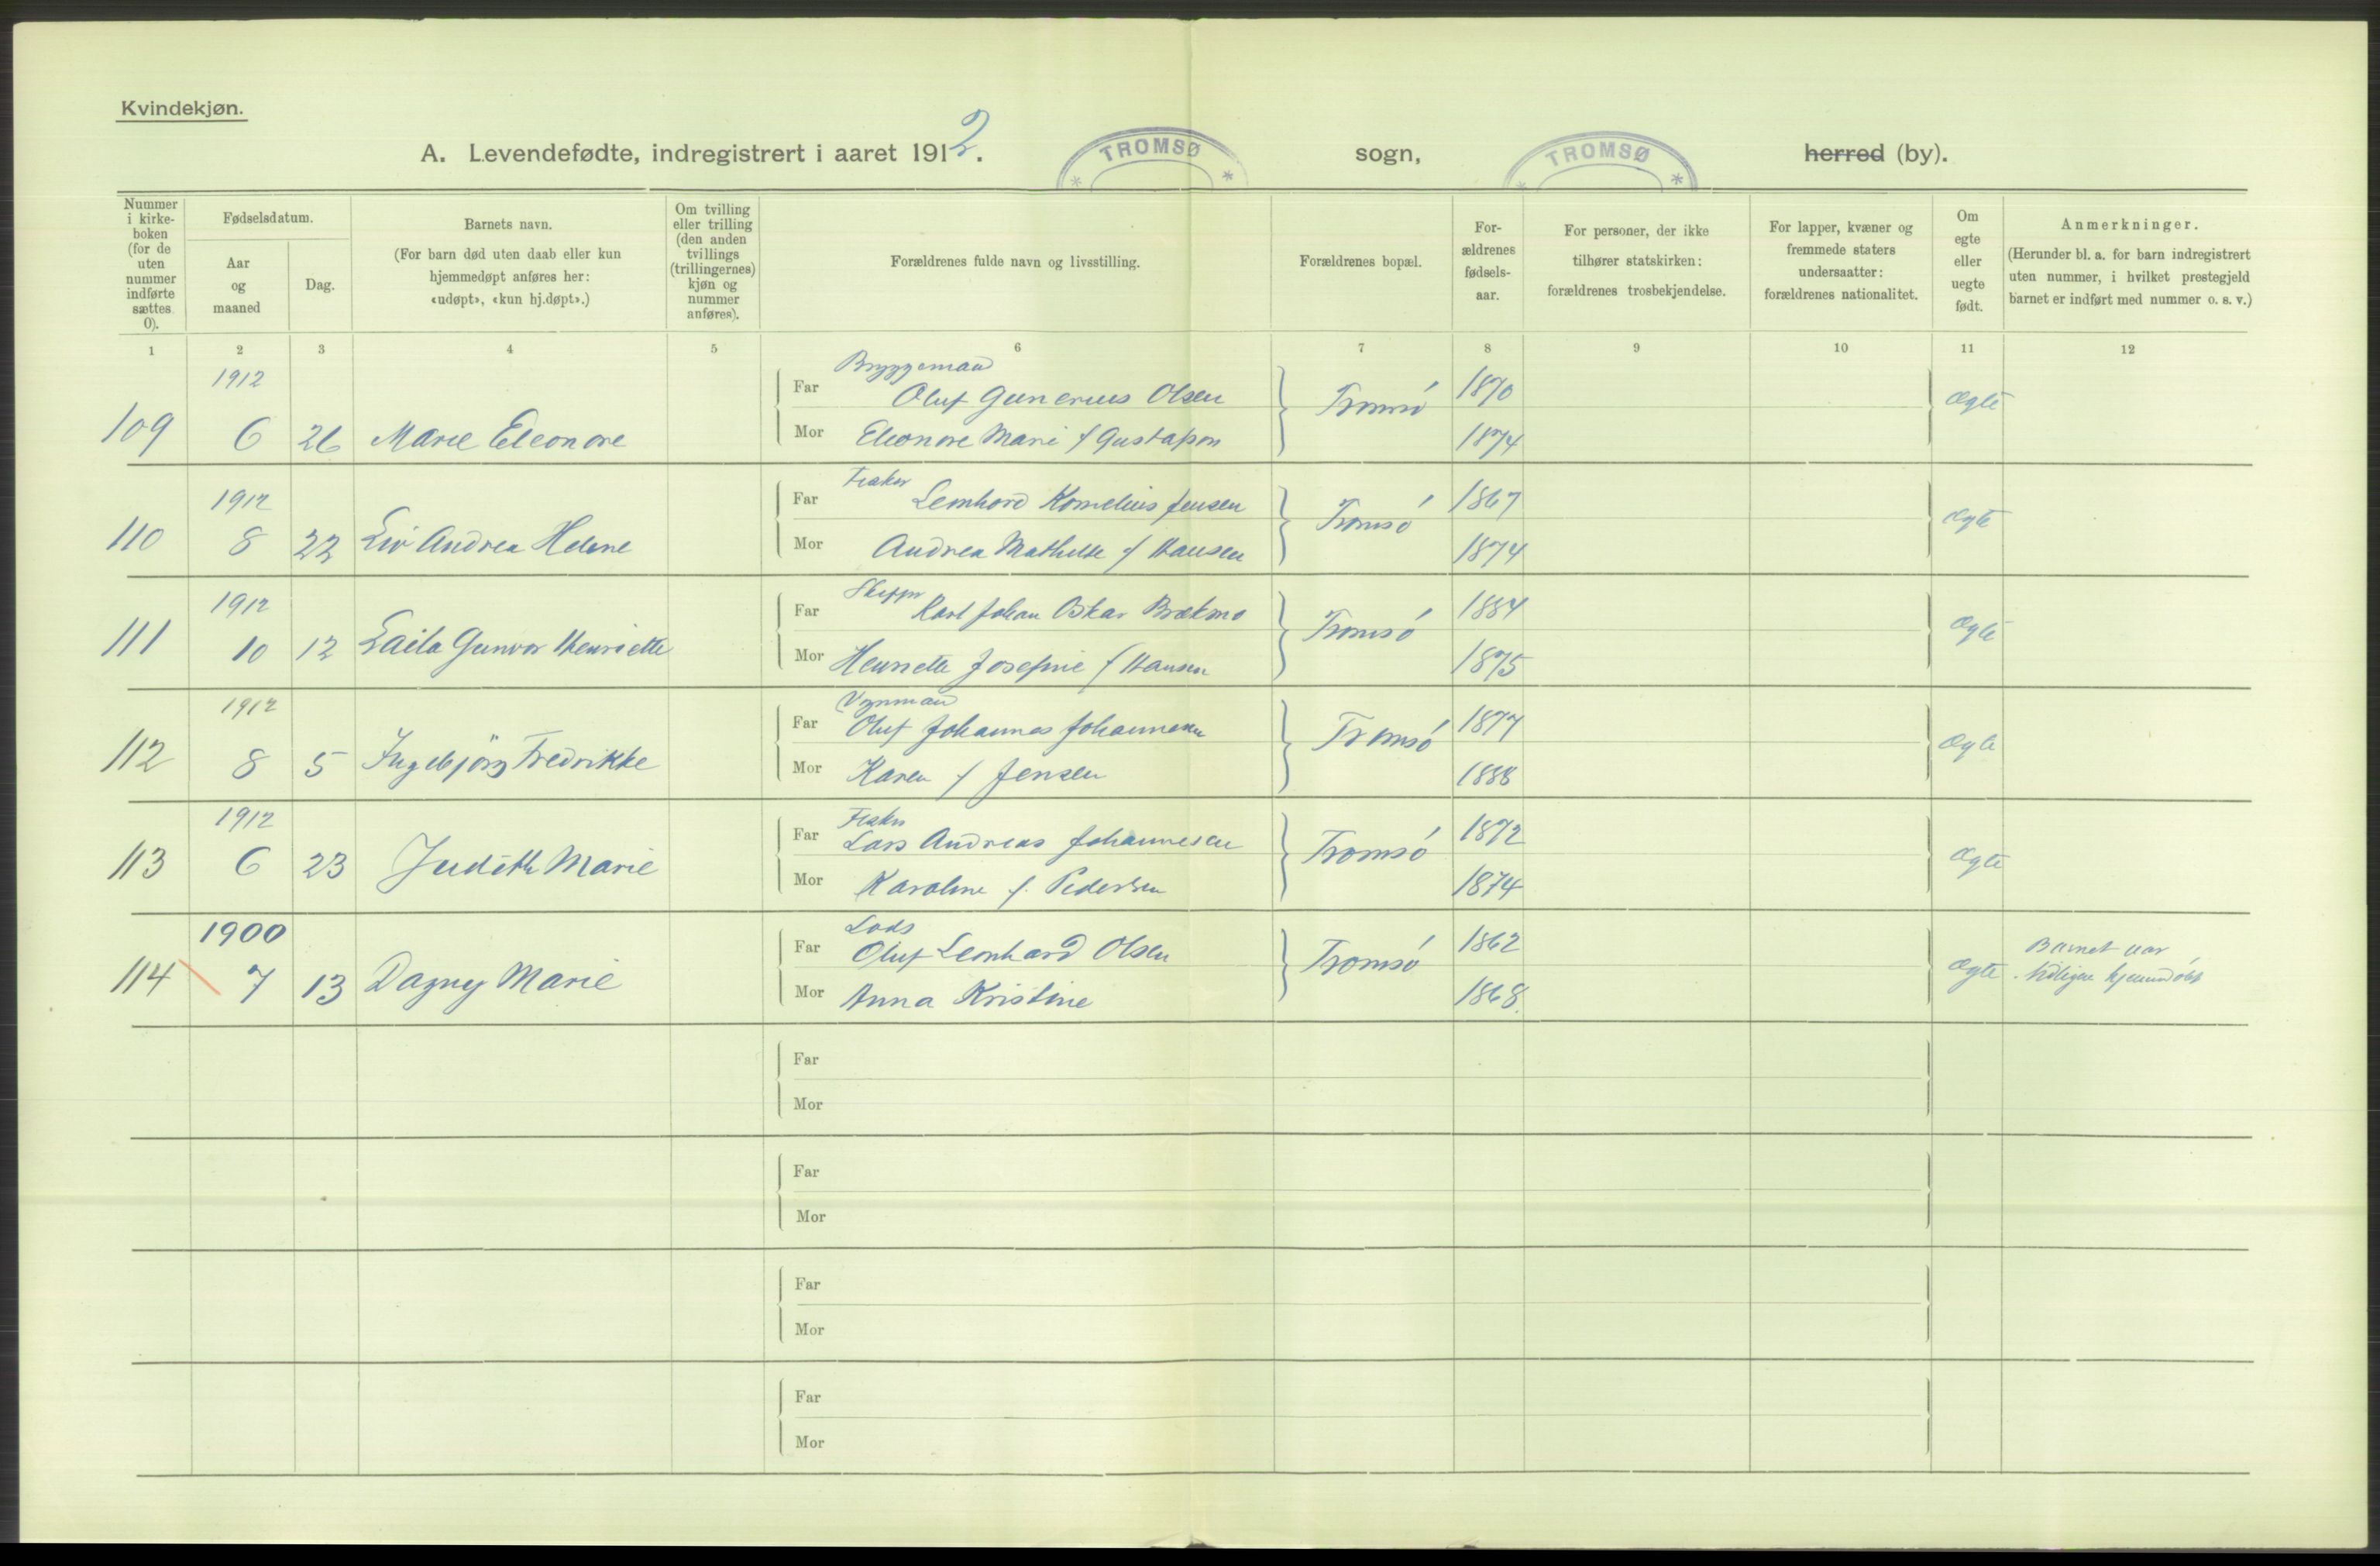 Kvindekjøn.
A. Levendefødte, indregistrert i aaret 1912. TROMSØ sogn, TROMSØ herred (by).
Nummer i kirke-boken (for de uten nummer indførte sættes 0).
Fødselsdatum.
Aar og maaned
Dag.
Barnets navn.
(For barn død uten daab eller kun hjemmedøpt anføres her: «udøpt», «kun hj.døpt».)
Om tvilling eller trilling (den anden tvillings (trillingernes) kjøn og nummer anføres).
Forældrenes fulde navn og livsstilling.
Forældrenes bopæl.
For-ældrenes fødsels-aar.
For personer, der ikke tilhører statskirken: forældrenes trosbekjendelse.
For lapper, kvæner og fremmede staters undersaatter: forældrenes nationalitet.
Om egte eller uegte født.
Anmerkninger.
(Herunder bl. a. for barn indregistrert uten nummer, i hvilket prestegjeld barnet er indført med nummer o. s. v.)
1 2 3 4 5 6 7 8 9 10 11 12
1912 Bryggemand
Far Oluf Gunerius Olsen Tromsó 1870 Ægte
109 6 26 Marie Eleonore Mor Eleonore Marie f Gustafson 1874
1912 Fisker
Far Leonhard Kornelius Jensen Tromsó 1867 Ægte
110 8 22 Liv Andrea Helene Mor Andrea Mathilde f Hansen 1874
1912 Skipper
Far Karl Johan Oskar Brækmo Tromsó 1884 Ægte
111 10 12 Laila Gunvor Henriette Mor Henriette Josefine f Hansen 1875
1912
Far Oluf Johannes Johannesen Tromsó 1877 Ægte
112 8 5 Ingebjörg Fredrikke Mor Karen f Jensen 1888
1912 Fisker
Far Lars Andreas Johannesen Tromsó 1872 Ægte
113 6 23 Judith Marie Mor Karoline f. Pedersen 1874
1900 Lods
Far Oluf Leonhard Olsen Tromsó 1862 Ægte Barnet var
114 7 13 Dagny Marie Mor Anna Kristine 1868. tidligere hjemmedöbt
Far
Mor
Far
Mor
Far
Mor
Far
Mor